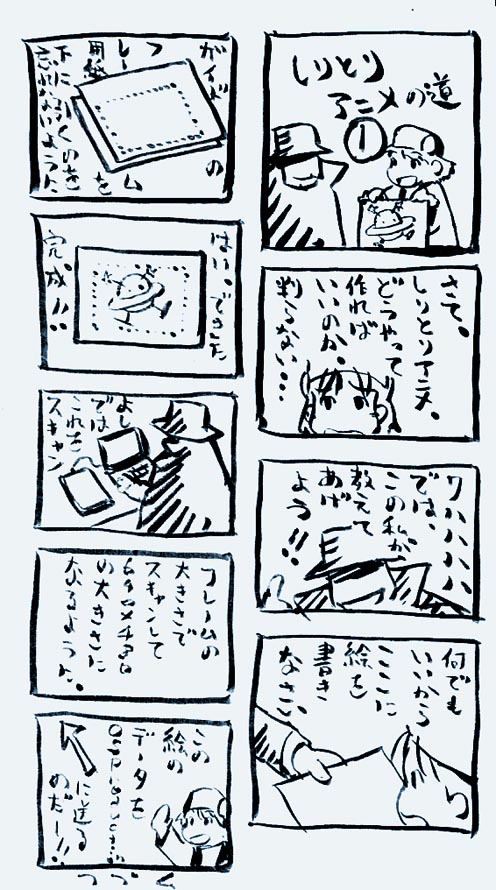 しりとり
アニメの道
①
さて。
しりとりアニメ。
どうやって
作れば
いいのか。
判らない…
ワハハハハ
では、
この私が
教えて
あげ
よう!!
何でも
いいから
ここに
絵を
書き
なさい
ガイドの
フレーム
用紙を
下にしくのを
忘れないように
はい。できた
完成!!
よし
では
これを
スキャン
フレームの
大きさで
スキャンして
の大きさに
なるように。
この
絵の
データを
に送る
のだー!!
つづく